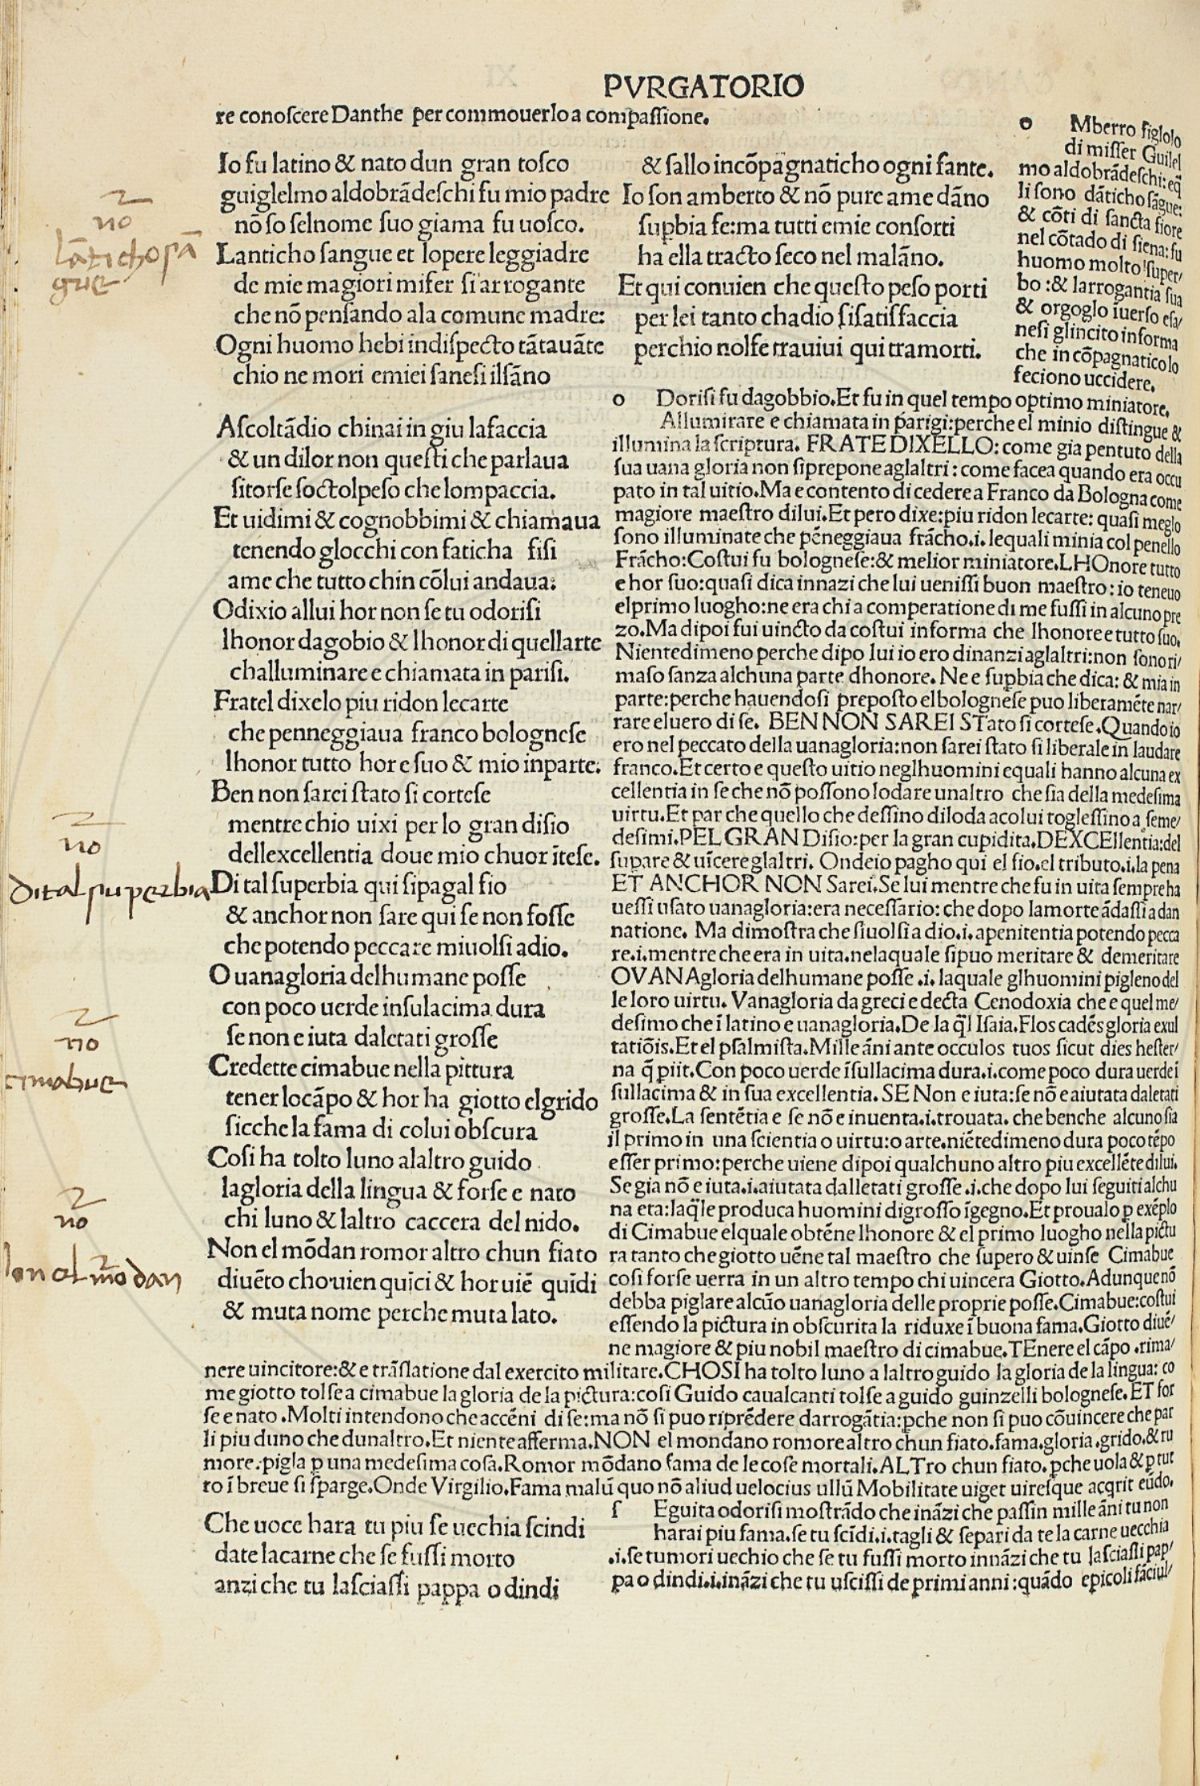 PVRGATORIO
re conoſcere Danthe per commouerlo a compaſſione.
Io fu latino & nato dun gran toſco
guiglelmo aldobrãdeſchi fu mio padre
nõ ſo ſelnome ſuo giama fu uoſco.
Lanticho ſangue et lopere leggiadre
de mie magiori miſer ſi arrogante
che nõ penſando ala comune madre:
Ogni huomo hebi indiſpecto tãtauãte
chio ne mori emiei ſaneſi ilſãno
& ſallo incõpagnaticho ogni fante.
Io ſon amberto & nõ pure ame dãno
ſupbia fe:ma tutti emie conſorti
ha ella tracto ſeco nel malãno.
Et qui conuien che queſto peſo porti
per lei tanto chadio ſiſatiſfaccia
perchio nolfe trauiui qui tramorti.
o Mberro figlolo
di miſſer Guilel
mo aldobrãdeſchi:eq̃
li ſono dãticho ſãgue:
& cõti di ſancta fiore
nel cõtado di ſiena:fu
huomo molto ſuper/
bo :& larrogantia ſua
& orgoglo iuerſo eſa/
neſi glincito informa
che in cõpagnatico lo
feciono uccidere.
lãticho ſã
gue
no
Aſcoltãdio chinai in giu lafaccia
& un dilor non queſti che parlaua
ſitorſe ſoctolpeſo che lompaccia.
Et uidimi & cognobbimi & chiamaua
tenendo glocchi con faticha fiſi
ame che tutto chin cõlui andaua:
Odixio allui hor non ſe tu odoriſi
lhonor dagobio & lhonor di quellarte
challuminare e chiamata in pariſi.
Fratel dixelo piu ridon lecarte
che penneggiaua franco bologneſe
lhonor tutto hor e ſuo & mio inparte.
Ben non ſarei ſtato ſi corteſe
mentre chio uixi per lo gran diſio
dellexcellentia doue mio chuor ĩteſe.
Di tal ſuperbia qui ſipagal fio
& anchor non ſare qui ſe non foſſe
che potendo peccare miuolſi adio.
O uanagloria delhumane poſſe
con poco uerde inſulacima dura
ſe non e iuta daletati groſſe
Credette cimabue nella pittura
tener locãpo & hor ha giotto elgrido
ſicche la fama di colui obſcura
Coſi ha tolto luno alaltro guido
lagloria della lingua & forſe e nato
chi luno & laltro caccera del nido.
Non el mõdan romor altro chun fiato
diuẽto cho uien quĩci & hor uiẽ quĩdi
& muta nome perche muta lato.
no
di tal ſuperbia
no
cimabue
no
non el mõdan
o Doriſi fu dagobbio.Et fu in quel tempo optimo miniatore.
Allumirare e chiamata in parigi:perche el minio diſtingue &
illumina la ſcriptura. FRATE DIXELLO: come gia pentuto della
ſua uana gloria non ſiprepone aglaltri : come facea quando era occu
pato in tal uitio.Ma e contento di cedere a Franco da Bologna come
magiore maeſtro dilui.Et pero dixe:piu ridon lecarte: quaſi meglo
ſono illuminate che pẽneggiaua frãcho.i.lequali minia col penello
Frãcho:Coſtui fu bologneſe:& melior miniatore.LHOnore tutto
e hor ſuo:quaſi dica innazi che lui ueniſſi buon maeſtro : io teneuo
elprimo luogho:ne era chi a comperatione di me fuſſi in alcuno pre
zo.Ma dipoi fui uincto da coſtui informa che lhonore e tutto ſuo.
Nientedimeno perche dipo lui io ero dinanzi aglaltri:non ſono ri/
maſo ſanza alchuna parte dhonore. Ne e ſupbia che dica: & mia in
parte:perche hauendoſi prepoſto elbologneſe puo liberamẽte nar/
rare eluero di ſe. BEN NON SAREI STato ſi corteſe.Quando io
ero nel peccato della uanagloria:non ſarei ſtato ſi liberale in laudare
franco.Et certo e queſto uitio neglhuomini equali hanno alcuna ex
cellentia in ſe che nõ poſſono lodare unaltro che ſia della medeſima
uirtu.Et par che quello che deſſino diloda acolui togleſſino a ſeme/
deſimi.PEL GRAN Diſio:per la gran cupidita.DEXCEllentia:del
ſupare & uĩcere glaltri. Ondeio pagho qui el fio.el tributo.i.la pena
ET ANCHOR NON Sarei.Se lui mentre che fu in uita ſempre ha
ueſſi uſato uanagloria:era neceſſario: che dopo lamorte ãdaſſi a dan
natione. Ma dimoſtra che ſiuolſi a dio.i.apenitentia potendo pecca
re.i.mentre che era in uita.nelaquale ſipuo meritare & demeritare
OVANAgloria delhumane poſſe .i. laquale glhuomini pigleno del
le loro uirtu. Vanagloria da greci e decta Cenodoxia che e quel me/
deſimo che ĩ latino e uanagloria.De la q̃l Iſaia.Flos cadẽs gloria exul
tatiõis.Et el pſalmiſta.Mille ãni ante occulos tuos ſicut dies heſter/
na q̃ piit.Con poco uerde ĩſullacima dura.i.come poco dura uerde ĩ
ſullacima & in ſua excellentia. SE Non e iuta:ſe nõ e aiutata daletati
groſſe.La ſentẽtia e ſe nõ e inuenta.i.trouata. che benche alcuno ſia
il primo in una ſcientia o uirtu:o arte.niẽtedimeno dura poco tẽpo
eſſer primo:perche uiene dipoi qualchuno altro piu excellẽte dilui.
Se gia nõ e iuta.i.aiutata dalletati groſſe .i.che dopo lui ſeguiti alchu
na eta:laq̃le produca huomini digroſſo ĩgegno.Et proualo p exẽplo
di Cimabue elquale obtẽne lhonore & el primo luogho nella pictu
ra tanto che giotto uẽne tal maeſtro che ſupero & uinſe Cimabue
coſi forſe uerra in un altro tempo chi uincera Giotto.Adunque nõ
debba piglare alcũo uanagloria delle proprie poſſe.Cimabue:coſtui
eſſendo la pictura in obſcurita la riduxe ĩ buona fama.Giotto diuẽ/
ne magiore & piu nobil maeſtro di cimabue. TEnere el cãpo .rima/
nere uincitore:& e trãſlatione dal exercito militare.CHOSI ha tolto luno a laltro guido la gloria de la lingua: co
me giotto tolſe a cimabue la gloria de la pictura:coſi Guido caualcanti tolſe a guido guinzelli bologneſe. ET for
ſe e nato .Molti intendono che accẽni di ſe:ma nõ ſi puo riprẽdere darrogãtia:pche non ſi puo cõuincere che par
li piu duno che dunaltro.Et niente afferma.NON el mondano romore altro chun fiato.fama.gloria.grido.& ru
more.pigla p una medeſima coſa.Romor mõdano fama de le coſe mortali.ALTro chun fiato. pche uola & p tut
to ĩ breue ſi ſparge.Onde Virgilio.Fama malũ quo nõ aliud uelocius ullũ Mobilitate uiget uireſque acqrit eũdo.
Che uoce hara tu piu ſe uechia ſcindi
date lacarne che ſe fuſſi morto
anzi che tu laſciaſſi pappa o dindi
ſ Eguita odoriſi moſtrãdo che inãzi che paſſin mille ãni tu non
harai piu fama.ſe tu ſcĩdi.i.tagli & ſepari da te la carne uecchia
.i.ſe tumori uechio che ſe tu fuſſi morto innãzi che tu laſciaſſi pap/
pa o dindi.i.inãzi che tu uſciſſi de primi anni :quãdo epicoli fãciul/